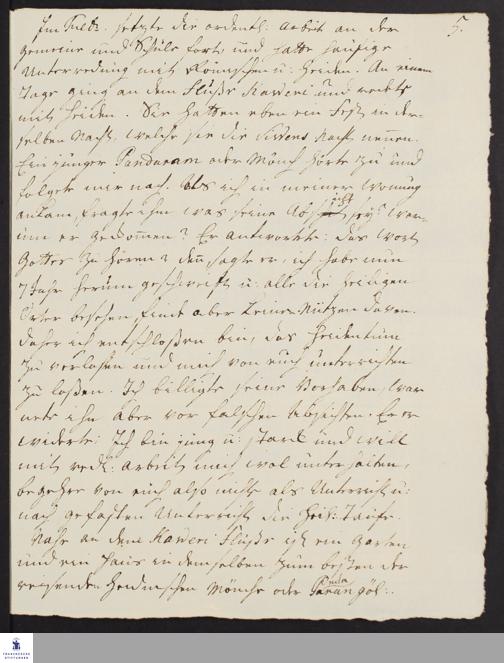 5.
Im Febr. setzte die ordentl: Arbeit an der
Gemeine und Schule fort, und hatte häufige
Unterredung mit Römschen u: Heiden. An einem
Tage ging an den Fluße Kaweri und redete
mit Heiden. Sie hatten eben ein Fest in der-
selben Nacht, welche sie die Siwens Nacht nennen.
Ein junger Pandaram oder Mönch hörte zu und
folgete mir nach. Als ich in meiner Wohnung
ankam, fragte ihn was seine Absicht sey? War-
um er gekommen? Er antwortete: das Wort
Gottes zu hören? denn sagte er, ich habe nun
7 Jahr herum geschweift u: alle die heiligen
Örter besehen, finde aber keinen Nutzen davon.
Daher ich entschloßen bin, das Heidentum
zu verlaßen und mich von euch unterrichten
zu laßen. Ich billigte seine Vorhaben, war-
nete ihn aber vor falschen Absichten. Er er-
widerte: Ich bin jung u: stark und will
mit redl: Arbeit mich wol unterhalten,
begehre von euch also nichts als Unterricht u:
nach gefaßten Unterricht die heil: Taufe.
Nahe an dem Kaweri Fluße ist ein Garten
und ein Haus in demselben zum besten der
reisenden Heidnischen Mönche oder
FRANCKESCHE
STIFTUNGEN